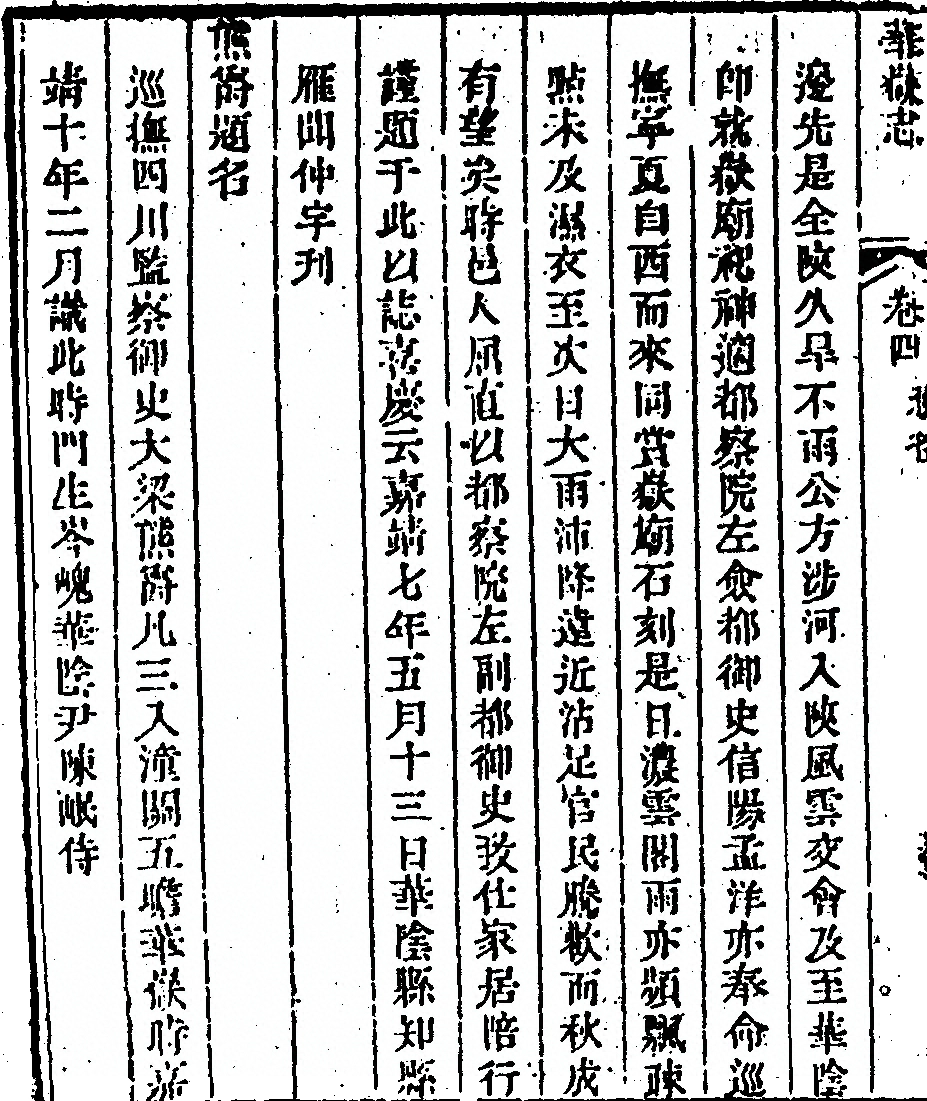 華嶽志 卷四
邊先是全陝久旱不雨公方涉河入陝風雲交會及至華陰
卽就嶽廟祀神適都察院左僉都御史信陽孟洋亦奉命巡
撫寧夏自西而來同賞嶽廟石刻是日濃雲閣雨亦頻飄疎
點未及濕衣至次日大雨沛降遠近沾足官民騰歡而秋成
有望矣時邑人屈直以都察院左副都御史致仕家居陪行
謹題于此以誌嘉慶云嘉靖七年五月十三日華陰縣知縣
雁門仲字刊
熊爵題名
巡撫四川監察御史大梁熊爵凡三入潼關五瞻華嶽時嘉
靖十年二月議此時門生岑嵬華陰尹陳岷侍